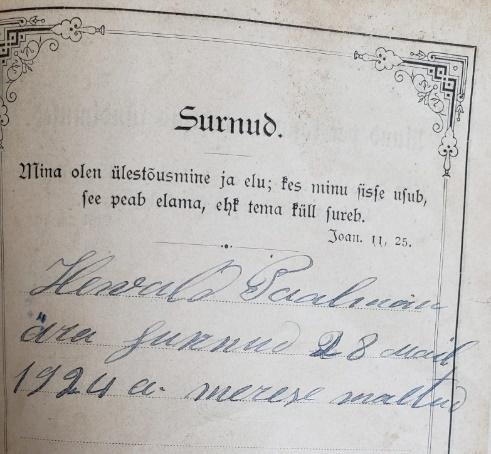 Surnud.
Mina olen ülestõusmine ja elu; kes minu sisse usub,
see peab elama, ehk tema küll sureb.
Joan. 11, 25.
Hervald Paalman
ära surnud 28 Mail
1924 a. merese mattud